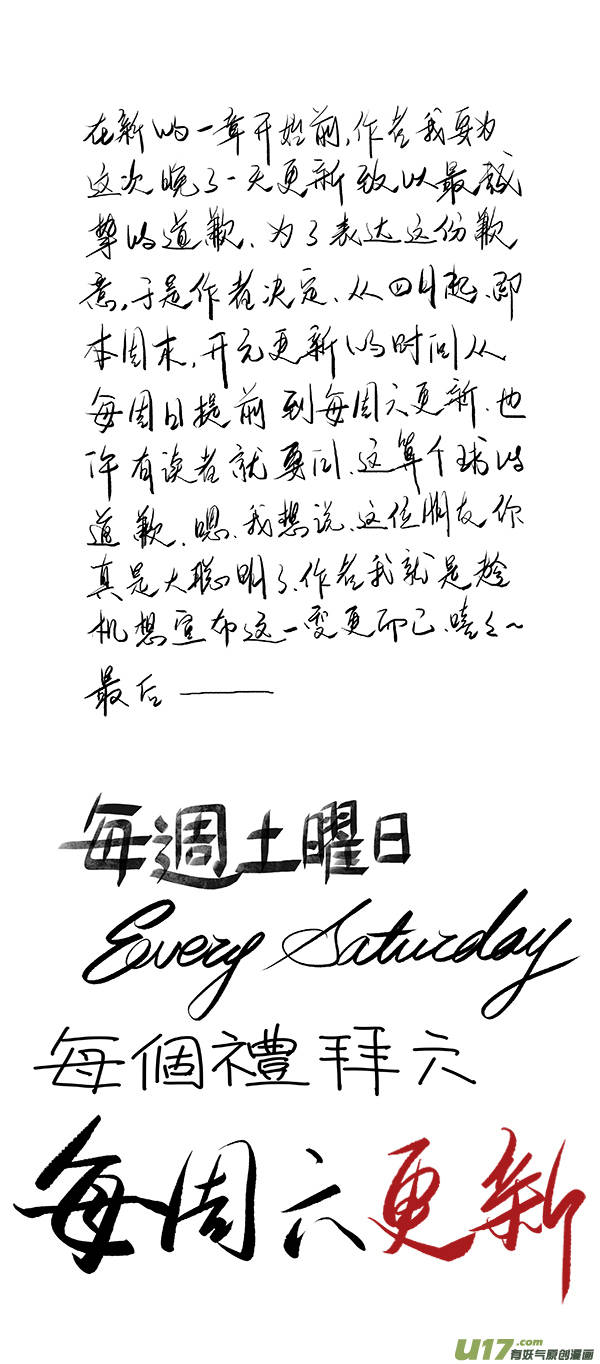 在新的一章开始前,作者我要为
这次晚了一天更新致以最诚
挚的道歉、为了表达这份歉
意,于是作者决定、从四月起、即
本周末,开元更新的时间从
每周日提前到每周六更新、也
许有读者就要问、这算个球的
道歉、嗯、我想说、这位朋友你
真是太聪明了、作者我就是趁
机想宣布这一变更而已、嘻々~
最后——
每週土曜日
Every Saturday
每個禮拜六
每周六更新
U17.com
有妖气原创漫画